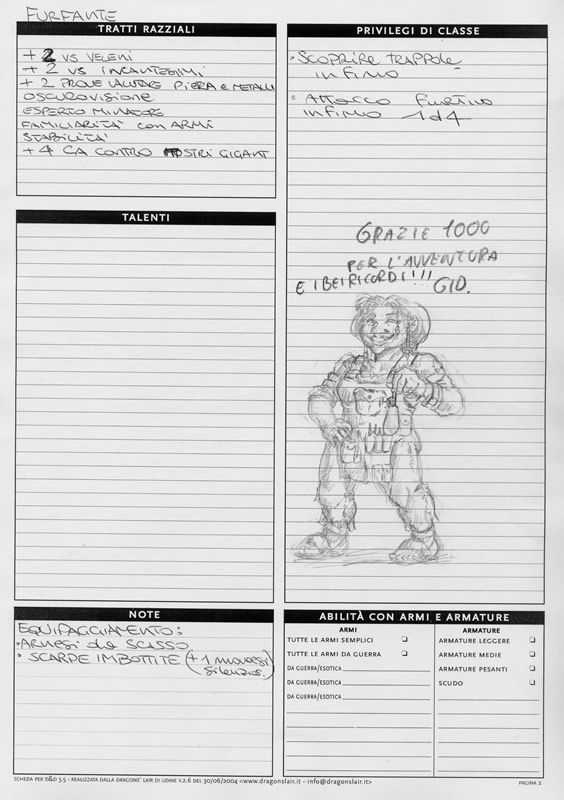 FURFANTE
TRATTI RAZZIALI
+2 VS VELENI
+2 VS INCANTESIMI
+2 PROVE VALUTARE PIERA e METALLI
OSCUROVISIONE
ESPERTO MINATORE
FAMILIARITÀ con ARMI
STABILITÀ
+4 CA CONTRO MOSTRI GIGANT
TALENTI
PRIVILEGI DI CLASSE
• SCOPRIRE TRAPPOLE
infimo
• ATTACCO FURTIVO
infimo 1d4
GRAZIE 1000
PER L'AVVENTURA
E I BEI RICORDI!!! GIO.
NOTE
EQUIPAGGIAMENTO:
• ARNESI da SCASSO
• SCARPE IMBOTTITE (+1 muoversi
silenzios.)
ABILITÀ CON ARMI E ARMATURE
ARMI
TUTTE LE ARMI SEMPLICI
TUTTE LE ARMI DA GUERRA
DA GUERRA/ESOTICA
DA GUERRA/ESOTICA
DA GUERRA/ESOTICA
ARMATURE
ARMATURE LEGGERE
ARMATURE MEDIE
ARMATURE PESANTI
SCUDO
SCHEDA PER D&D 3.5 • REALIZZATA DALLA DRAGONS' LAIR DI UDINE V.2.6 DEL 30/06/2004 <www.dragonslair.it - info@dragonslair.it>
PAGINA 2